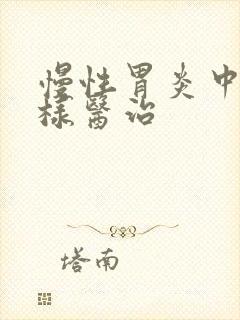 慢性胃炎中
様醫治
塔南